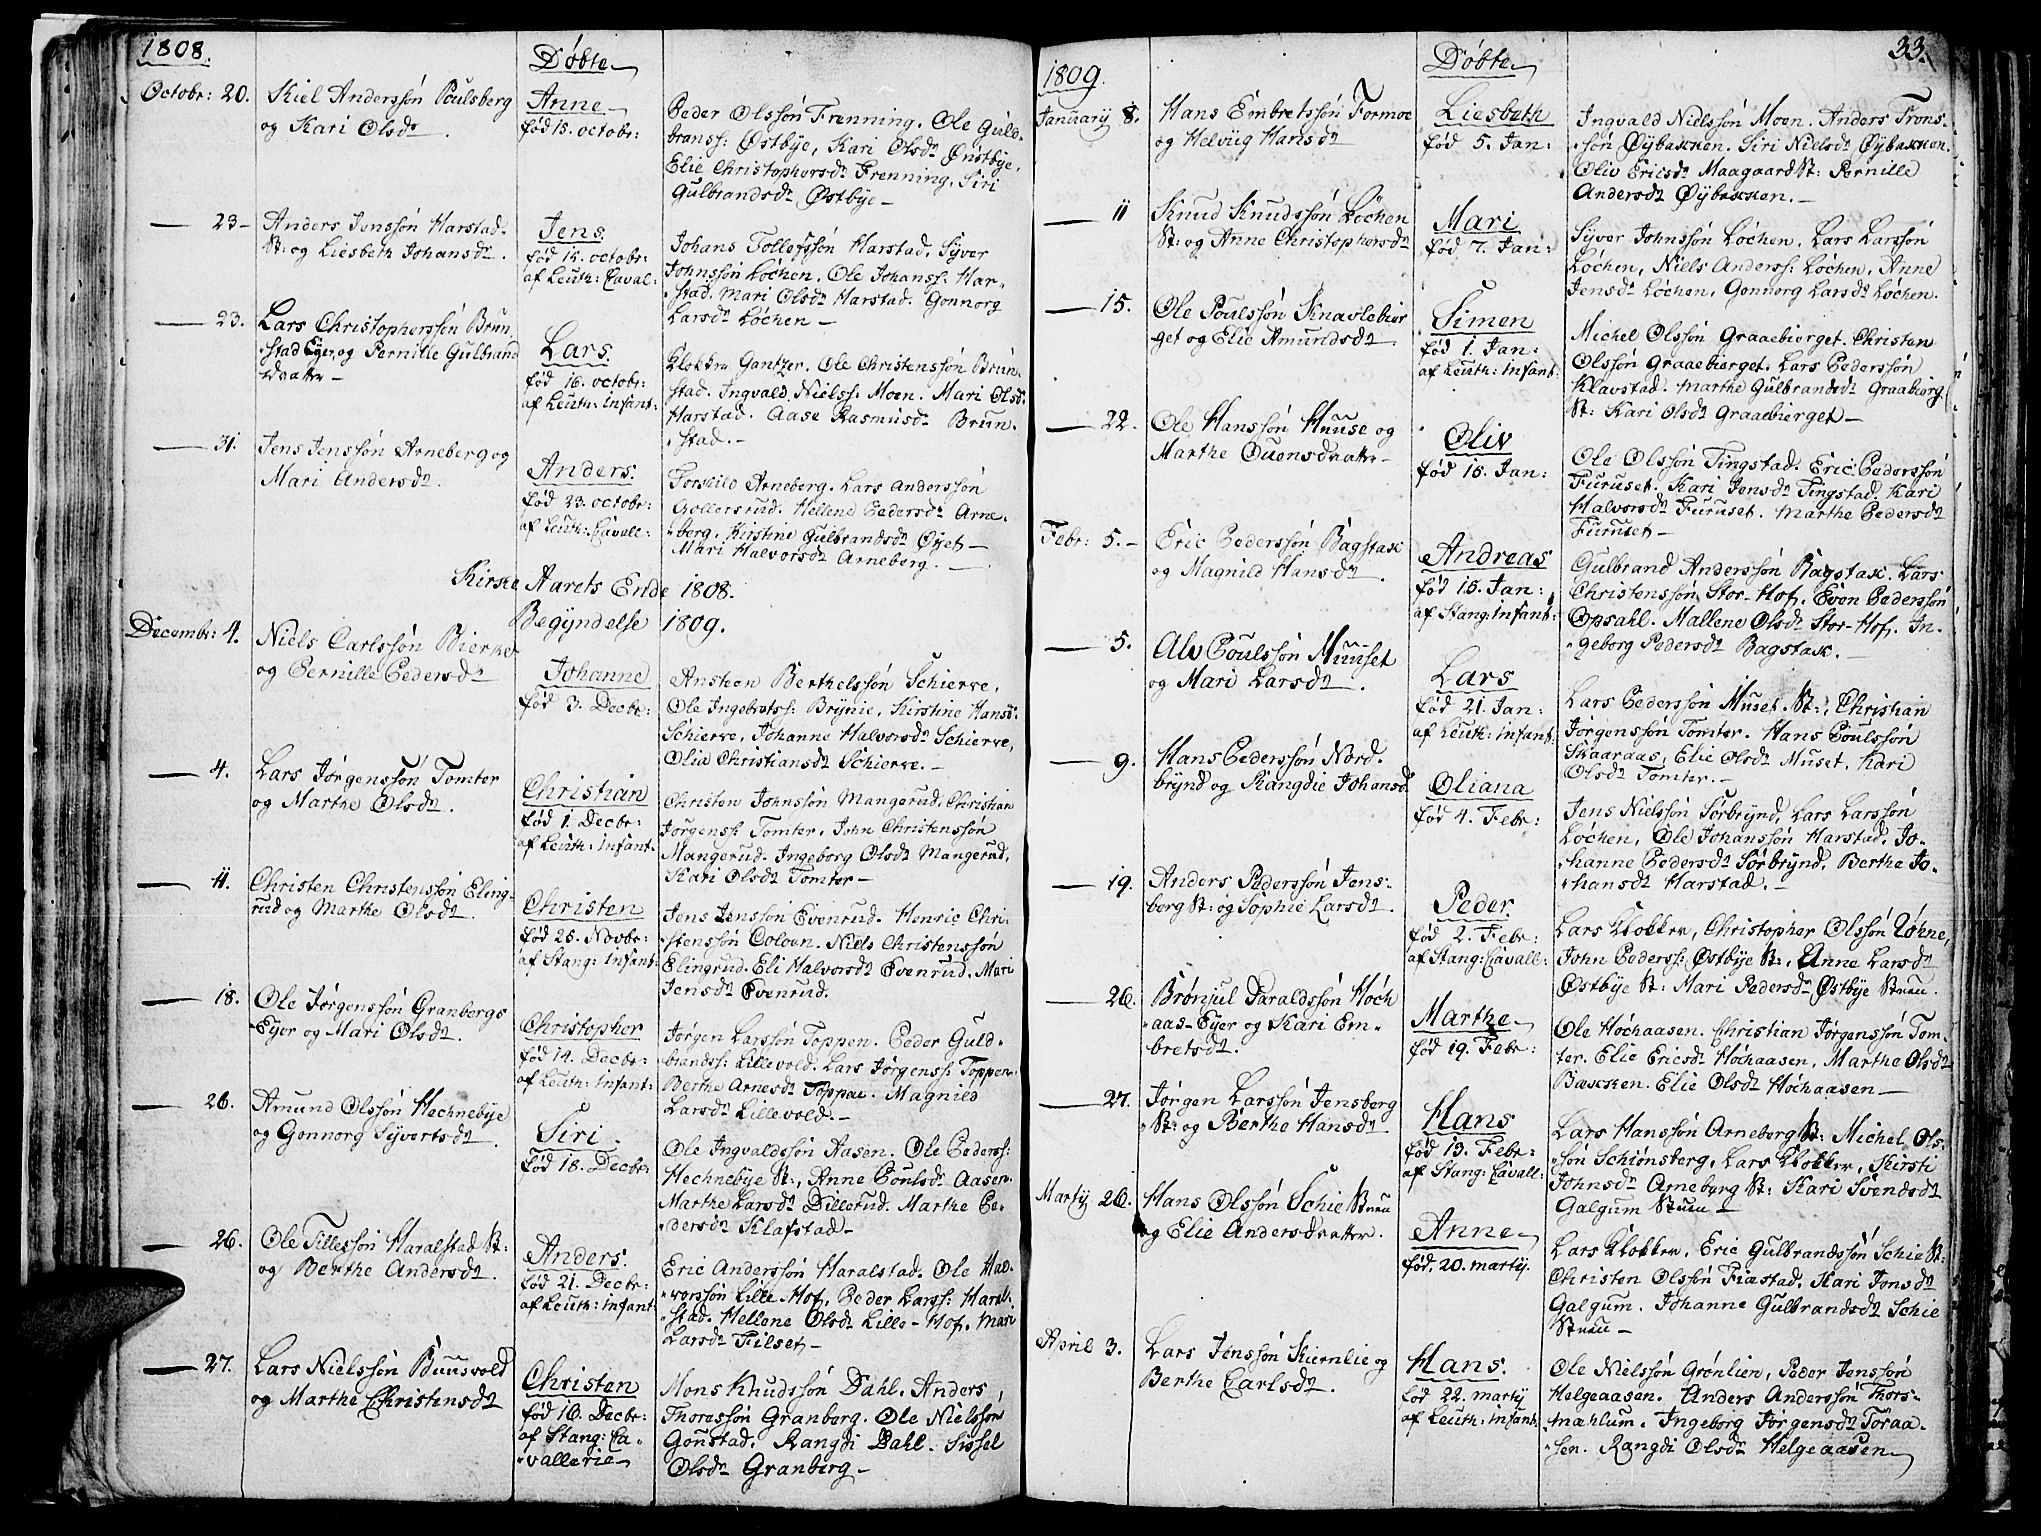 1808.
Døbte
Octobr: 20.
Kiel Anderssön Poulsberg
og Kari Olsdr.
Anne
fød 15. octobr:
Peder Olssön Frenning. Ole Guld-
branss: Østbye, Kari Olsdr Østbye,
Elie Christophersdr Frenning. Siri
Gulbrandsdr Østbye
23
Anders Jenssön Harstad-
St: og Liesbeth Johansdr.
Jens
fød 15. octobr:
af Leuth: Caval:
Johans Tollefssön Harstad. Syver
Johnssön Løchen. Ole Johanss: Har-
stad. Mari Olsdr Harstad. Gonnorg
Larsdr Løchen
23.
Lars Christopherssön Brun
stad Ejer og Pernille Gulbrand
datter
Lars
fød 16. octobr:
af Leuth: infant:
Klokker Gantzer. Ole Christenssön Brun-
stad. Ingvald Nielss: Moen. Mari Olsdr
Harstad. Aase Rasmusdr Brun-
stad.
31.
Jens Jenssön Arneberg og
Mari Andersdr.
Anders
fød 23. octobr:
af Leuth: Cavall:
Torskild Arneberg. Lars Anderssön
Gollersrud. Hellene Pedersdr Arne-
berg. Kirstine Gulbrandsdr Øyet
Mari Halvorsdr Arneberg.
Kirke Aarets Ende 1808.
Begyndelse 1809.
Decembr: 4.
Niels Carlssön Bierke
og Pernille Pedersdr
Johanne
fød 3. Decbr:
Ansteen Berthelssön Schierve,
Ole Ingebretss: Brynie, Kirstine Hansdr
Schierve, Johanne Halvorsdr Schierve,
Olia Christiansdr Schierve.
4.
Lars Jørgenssön Tomter
og Marthe Olsdr.
Christian
fød 1. Decbr:
af Leuth: infant:
Christen Johnssön Mangerud. Christian
Jørgenss: Tomter. John Christenssön
Mangerud. Ingeborg Olsdr Mangerud,
Kari Olsdr Tomter
11.
Christen Christenssön Eling-
rud og Marthe Olsdr
Christen
fød 25. Novbr:
af Stang: infant:
Jens Jenssön Evenrud. Henric Chri-
stenssön Coloen. Niels Christenssön
Elingrud. Eli Halvorsdr Evenrud. Mari
Jensdr Evenrud.
18.
Ole Jørgenssön Granbergs
Ejer og Mari Olsdr.
Christopher
fød 14. Decbr:
af Leuth: infant:
Jørgen Larssön Toppen. Peder Guld-
brandss: Lillevold. Lars Jørgenss: Toppen.
Berthe Arnesdr Toppen. Magnild
Larsdr Lillevold.
26.
Amund Olssön Hechnebye
og Gonnorg Syvertsdr.
Siri
fød 18. Decbr:
Ole Ingvaldssön Aasen. Ole Pederss:
Hechnebye St:, Anne Poulsdr Aasen.
Marthe Larsdr Dillerud. Marthe Pe-
dersdr Klafstad
26.
Ole Tillessön Haralstad St:
og Berthe Andersdr.
Anders
fød 21. Decbr:
af Leuth: infant:
Eric Anderssön Haralstad. Ole Hal-
vorssön Lille Hof, Peder Larss: Haral-
stad. Hellene Olsdr Lille-Hof. Mari
Larsdr Filset
27.
Lars Nielssön Buusvold
og Marthe Christensdr
Christen
fød 16. Decbr:
af Stang: Ca-
vallerie
Mons Knudssön Dahl. Anders
Thoressön Granberg. Ole Nielssön
Gonstad. Rangdi Dahl. Sissel
Olsdr Granberg
1809.
Døbte
33.
January 8.
Hans Embretssön Formoe
og Helviig Hansdr
Liesbeth
fød 5. Jan:
Ingvald Nielssön Moen. Anders Trons-
sön Øybakken. Siri Nielsdr Øybakken.
Oliv Ericsdr Maagaard St: Pernille
Andersdr Øybakken.
11
Knud Knudssön Løchen
St: og Anne Christophersdr
Mari
fød 7. Jan:
Syver Johnssön Løchen. Lars Larssön
Løchen, Niels Anderss: Løchen, Anne
Jensdr Løchen, Gonnorg Larsdr Løchen.
15.
Ole Poulssön Knavlebier
get og Elie Amundsdr
Simen
fød 1. Jan:
af Leuth: infant:
Michel Olssön Graaebierget. Christen
Olssön Graaebierget. Lars Pederssön
Klavstad. Marthe Gulbrandsdr Graabierg.
St: Kari Olsdr Graaebierget
22.
Ole Hanssön Huuse og
Marthe Ouensdatter
Oliv
fød 15. Jan:
Ole Olssön Tingstad. Eric Pederssön
Furuset. Kari Jensdr Tingstad. Kari
Halvorsdr Furuset. Marthe Pedersdr
Furuset
Febr: 5.
Eric Pederssön Bagstax
og Magnild Hansdr.
Andreas
fød 15. Jan:
af Stang: infant:
Gulbrand Anderssön Bagstax. Lars
Christenssön Stor-Hof. Even Pederssön
Opsahl. Mallene Olsdr Stor-Hof. In-
geborg Pedersdr Bagstax.
5.
Alv Poulssön Muuset
og Mari Larsdr.
Lars
fød 21. Jan:
af Leuth: infant:
Lars Pederssön Muset St:, Christian
Jørgenssön Tomter. Hans Poulssön
Skaaraas, Elie Olsdr Muset, Kari
Olsdr Tomter.
9.
Hans Pederssön Nord-
brynd og Rangdie Johansdr
Oliana
fød 4. Febr:
Jens Nielssön Sörbrynd, Lars Larssön
Løchen, Ole Johanssön Harstad. Jo-
hanne Pedersdr Sörbrynd. Berthe Jo-
hansdr Harstad.
19.
Anders Pederssön Jens-
berg St: og Sophie Larsdr.
Peder
fød 2. Febr:
af Stang: Cavall:
Lars Klokker, Christopher Olssön Løhne,
John Pederss: Østbye St:, Anne Larsdr
Østbye St: Mari Pedersdr Østbye Stuen.
26.
Brønjul Haraldssön Hoch
aas-Ejer og Kari Em-
bretsdr.
Marthe
fød 19. Febr:
Ole Hochaasen. Christian Jørgenssön Tom-
ter. Elie Ericsdr Hochaasen, Marthe Olsdr
Bæcken. Elie Olsdr Hochaasen
27.
Jørgen Larssön Jensberg
St: og Berthe Hansdr
Hans
fød 13. Febr:
af Stang: Cavall:
Lars Hanssön Arneberg St: Michel Ols-
sön Schiønsberg, Lars Klokker, Kirsti
Johnsdr Arneberg St: Kari Svendsdr
Galgum Stuen
Martij 26.
Hans Olssön Schie Stuen
og Elie Andersdatter.
Anne
fød. 20. martij.
Lars Klokker. Eric Gulbrandssön Schie St:
Christen Olssön Fiæstad. Kari Jonsdr
Galgum. Johanne Gulbrandsdr Schie
Stuen
April 3.
Lars Jenssön Kiernlie og
Berthe Carlsdr.
Hans.
fød 22. martij
af Leuth: infant:
Ole Nielssön Grønlien, Peder Jenssön
Helgeaasen. Anders Anderssön Thors-
mæhlum. Ingeborg Jørgensdr Toraa-
sen. Rangdi Olsdr Helgeaasen